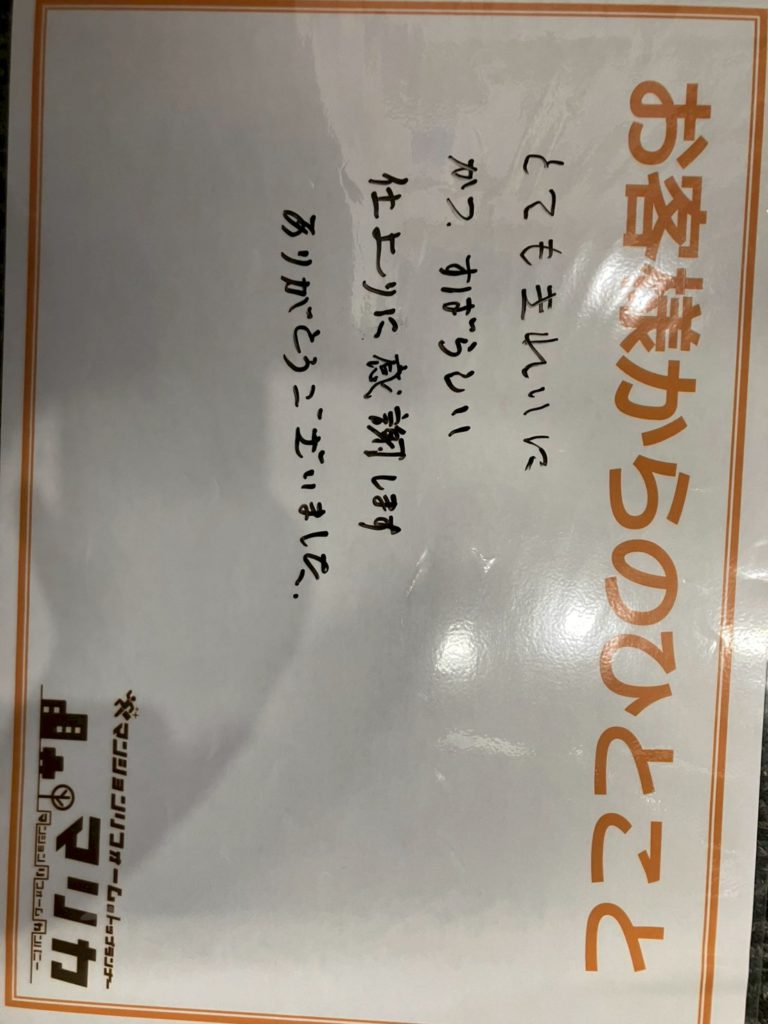 お客様からのひとこと
とてもきれいに
かつ、すばらしい
仕上りに感謝します
ありがとうございました.
マンションリフォームのトップランナー
マリカ
マンションリフォームカンパニー